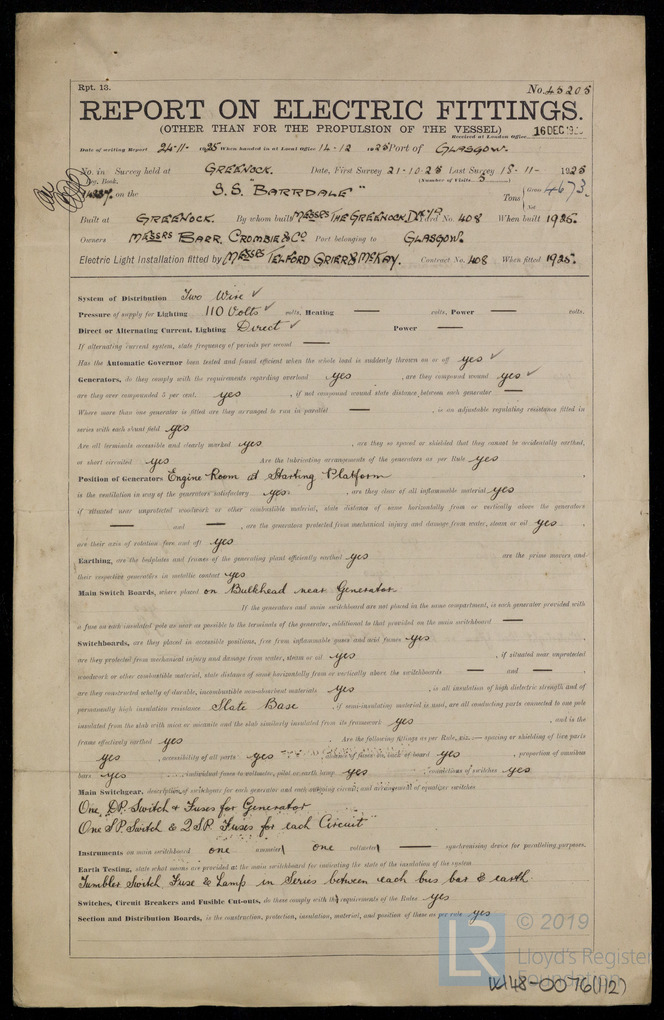 Rpt. 13.
No. 45205
REPORT ON ELECTRIC FITTINGS.
(OTHER THAN FOR THE PROPULSION OF THE VESSEL)
Received at London Office 16 DEC 192
Date of writing Report 24-11- 1925 When handed in at Local Office 14-12 1925 Port of GLASGOW.
No. in Survey held at GREENOCK. Date, First Survey 21-10-25 Last Survey 18-11- 1925
Reg. Book. (Number of Visits 3 )
on the S.S. "BARRDALE" Tons { Gross 4673.
Net
Built at GREENOCK. By whom built MESSRS THE GREENOCK Yard No. 408 When built 1925.
Owners MESSRS BARR, CROMBIE & Co Port belonging to GLASGOW.
Electric Light Installation fitted by MESSRS TELFORD GRIER & McKAY. Contract No. 408 When fitted 1925.
System of Distribution Two Wire ✓
Pressure of supply for Lighting 110 Volts ✓ volts, Heating — volts, Power — volts.
Direct or Alternating Current, Lighting Direct ✓ Power —
If alternating current system, state frequency of periods per second —
Has the Automatic Governor been tested and found efficient when the whole load is suddenly thrown on or off yes ✓
Generators, do they comply with the requirements regarding overload yes , are they compound wound yes ✓
are they over compounded 5 per cent. yes , if not compound wound state distance between each generator —
Where more than one generator is fitted are they arranged to run in parallel — , is an adjustable regulating resistance fitted in
series with each shunt field yes
Are all terminals accessible and clearly marked yes , are they so spaced or shielded that they cannot be accidentally earthed,
or short circuited yes Are the lubricating arrangements of the generators as per Rule yes
Position of Generators Engine Room at Starting Platform
is the ventilation in way of the generators satisfactory yes , are they clear of all inflammable material yes
if situated near unprotected woodwork or other combustible material, state distance of same horizontally from or vertically above the generators
— and — , are the generators protected from mechanical injury and damage from water, steam or oil yes
are their axis of rotation fore and aft yes
Earthing, are the bedplates and frames of the generating plant efficiently earthed yes are the prime movers and
their respective generators in metallic contact yes
Main Switch Boards, where placed on Bulkhead near Generator
If the generators and main switchboard are not placed in the same compartment, is each generator provided with
a fuse on each insulated pole as near as possible to the terminals of the generator, additional to that provided on the main switchboard —
Switchboards, are they placed in accessible positions, free from inflammable gases and acid fumes yes
are they protected from mechanical injury and damage from water, steam or oil yes , if situated near unprotected
woodwork or other combustible material, state distance of same horizontally from or vertically above the switchboards — and —
are they constructed wholly of durable, incombustible non-absorbent materials yes , is all insulation of high dielectric strength and of
permanently high insulation resistance Slate Base , if semi-insulating material is used, are all conducting parts connected to one pole
insulated from the slab with mica or micanite and the slab similarly insulated from its framework yes , and is the
frame effectively earthed yes . Are the following fittings as per Rule, viz.:— spacing or shielding of live parts
yes , accessibility of all parts yes , absence of fuses on back of board yes , proportion of omnibus
bars yes , individual fuses to voltmeter, pilot or earth lamp yes , connections of switches yes
Main Switchgear, description of switchgear for each generator and each outgoing circuit, and arrangement of equalizer switches
One D.P. Switch & Fuses for Generator
One S.P. Switch & 2 S.P. Fuses for each Circuit
Instruments on main switchboard one ammeter one voltmeter — synchronising device for paralleling purposes.
Earth Testing, state what means are provided at the main switchboard for indicating the state of the insulation of the system
Tumbler Switch, Fuse & Lamp in Series between each bus bar & earth
Switches, Circuit Breakers and Fusible Cut-outs, do these comply with the requirements of the Rules yes
Section and Distribution Boards, is the construction, protection, insulation, material, and position of these as per rule yes
© 2019
LR Lloyd's Register
Foundation
W148-0076(1/2)